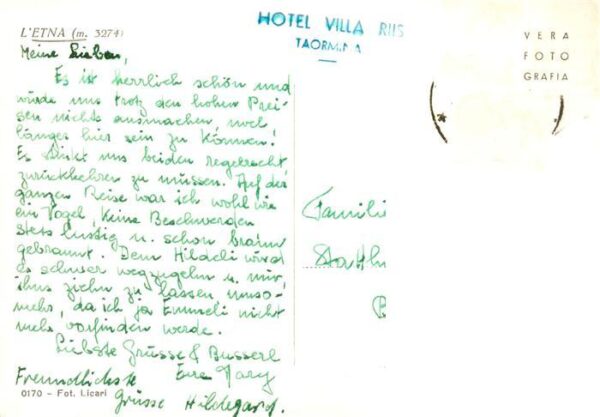 L'ETNA (m. 3274)
HOTEL VILLA RIIS
TAORMINA
VERA
FOTO
GRAFIA
Meine Lieben,
Es ist herrlich schön und
würde uns trotz den hohen Prei-
sen nichts ausmachen noch
länger hier sein zu können!
Es stinkt uns beiden regelrecht,
zurückkehren zu müssen. Auf der
ganzen Reise war ich wohl wie
ein Vogel, keine Beschwerden
stets lustig u. schon braun
gebrannt. Dem Hildeli wird
es schwer wegzugehn u. mir,
ihns ziehn zu lassen, umso-
mehr, da ich ja Emmeli nicht
mehr vorfinden werde.
Liebste Grüsse & Busserl
Eure Mary
Freundlichste
Grüsse Hildegard.
Famili
Statth
0170 - Fot. Licari